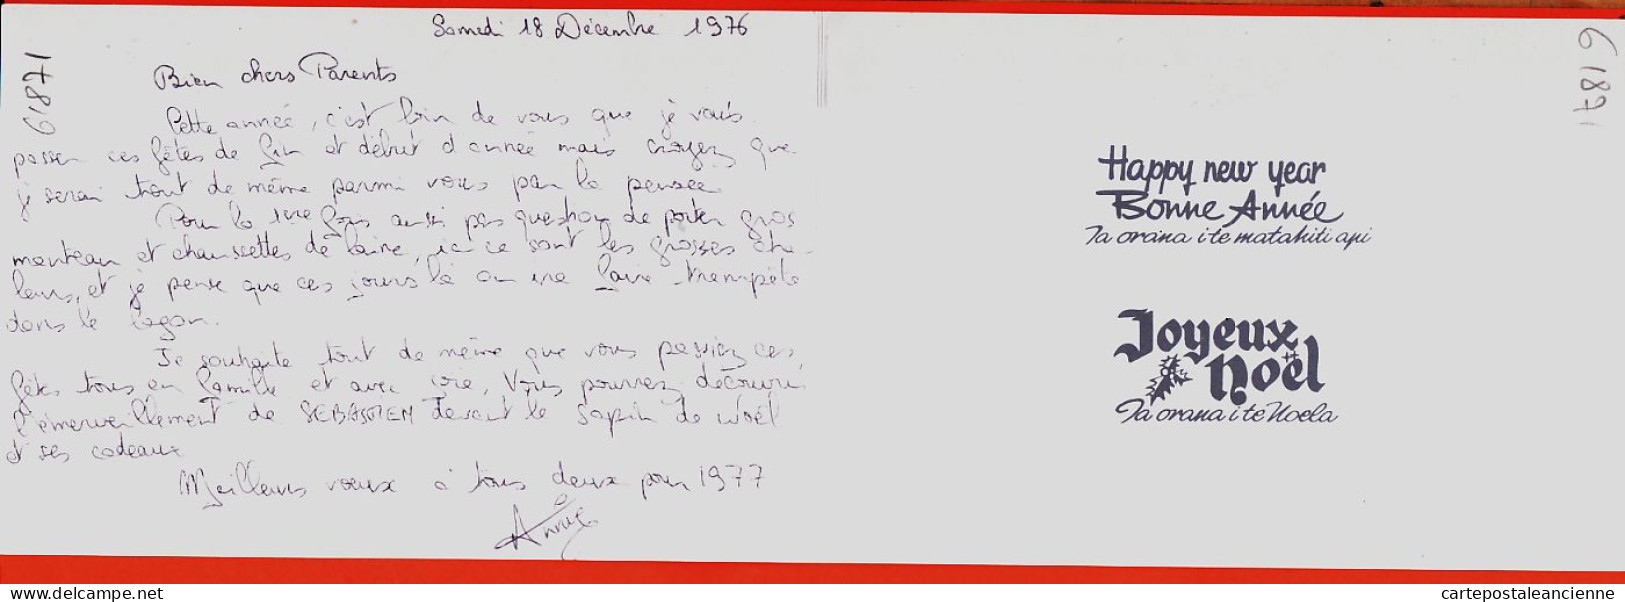 Samedi 18 Décembre 1976
61871
Bien chers Parents
Cette année, c'est loin de vous que je vais
passer ces fêtes de fin et début d'année mais croyez que
je serai tout de même parmi vous par la pensée
Pour la 1ère fois aussi pas question de porter gros
manteau et chaussettes de laine, ici ce sont les grosses cha-
leurs, et je pense que ces jours là on ira faire trempête
dans le lagon.
Je souhaite tout de même que vous passiez ces
fêtes tous en famille et avec joie, Vous pourrez découvrir
l'émerveillement de SEBASTIEN devant le sapin de Noël
et ses cadeaux
Meilleurs voeux à tous deux pour 1977
Annie
61871
Happy new year
Bonne Année
Ia orana i te matahiti api
Joyeux
Noël
Ia orana i te Noela
delcampe.net
cartepostaleancienne